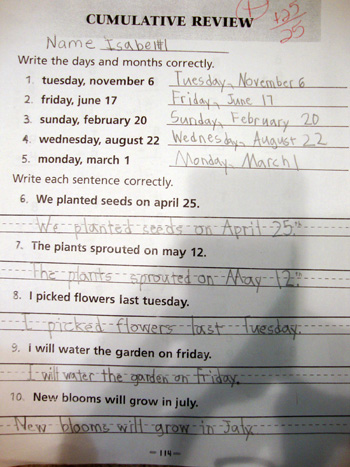 CUMULATIVE REVIEW
+25
25
Name Isabel #1
Write the days and months correctly.
1. tuesday, november 6 Tuesday, November 6
2. friday, june 17 Friday, June 17
3. sunday, february 20 Sunday, February 20
4. wednesday, august 22 Wednesday, August 22
5. monday, march 1 Monday, March 1
Write each sentence correctly.
6. We planted seeds on april 25.
We planted seeds on April 25.th
7. The plants sprouted on may 12.
The plants sprouted on May 12.th
8. I picked flowers last tuesday.
I picked flowers last Tuesday.
9. I will water the garden on friday.
I will water the garden on Friday.
10. New blooms will grow in july.
New blooms will grow in July.
— 114 —